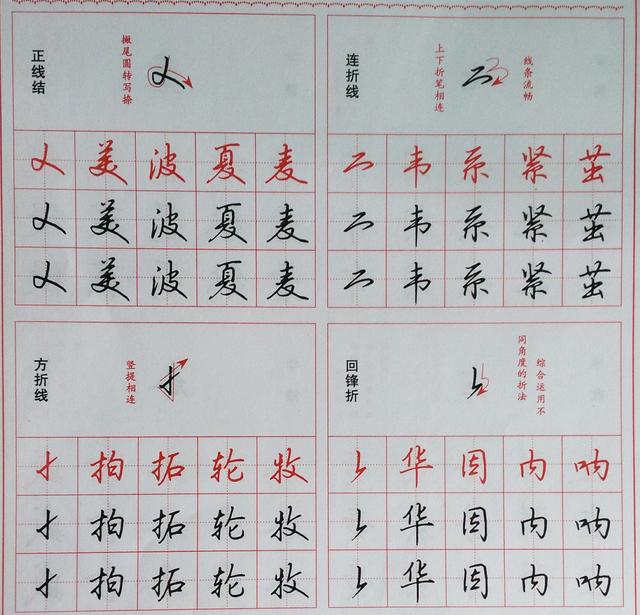 正线结
撇尾圆转写捺
美 波 夏 麦
美 波 夏 麦
美 波 夏 麦
连折线
上下折笔相连
线条流畅
韦 系 紧 茧
韦 系 紧 茧
韦 系 紧 茧
方折线
竖提相连
拍 拓 轮 牧
拍 拓 轮 牧
拍 拓 轮 牧
回锋折
综合运用不
同角度的折法
华 因 内 呐
华 因 内 呐
华 因 内 呐